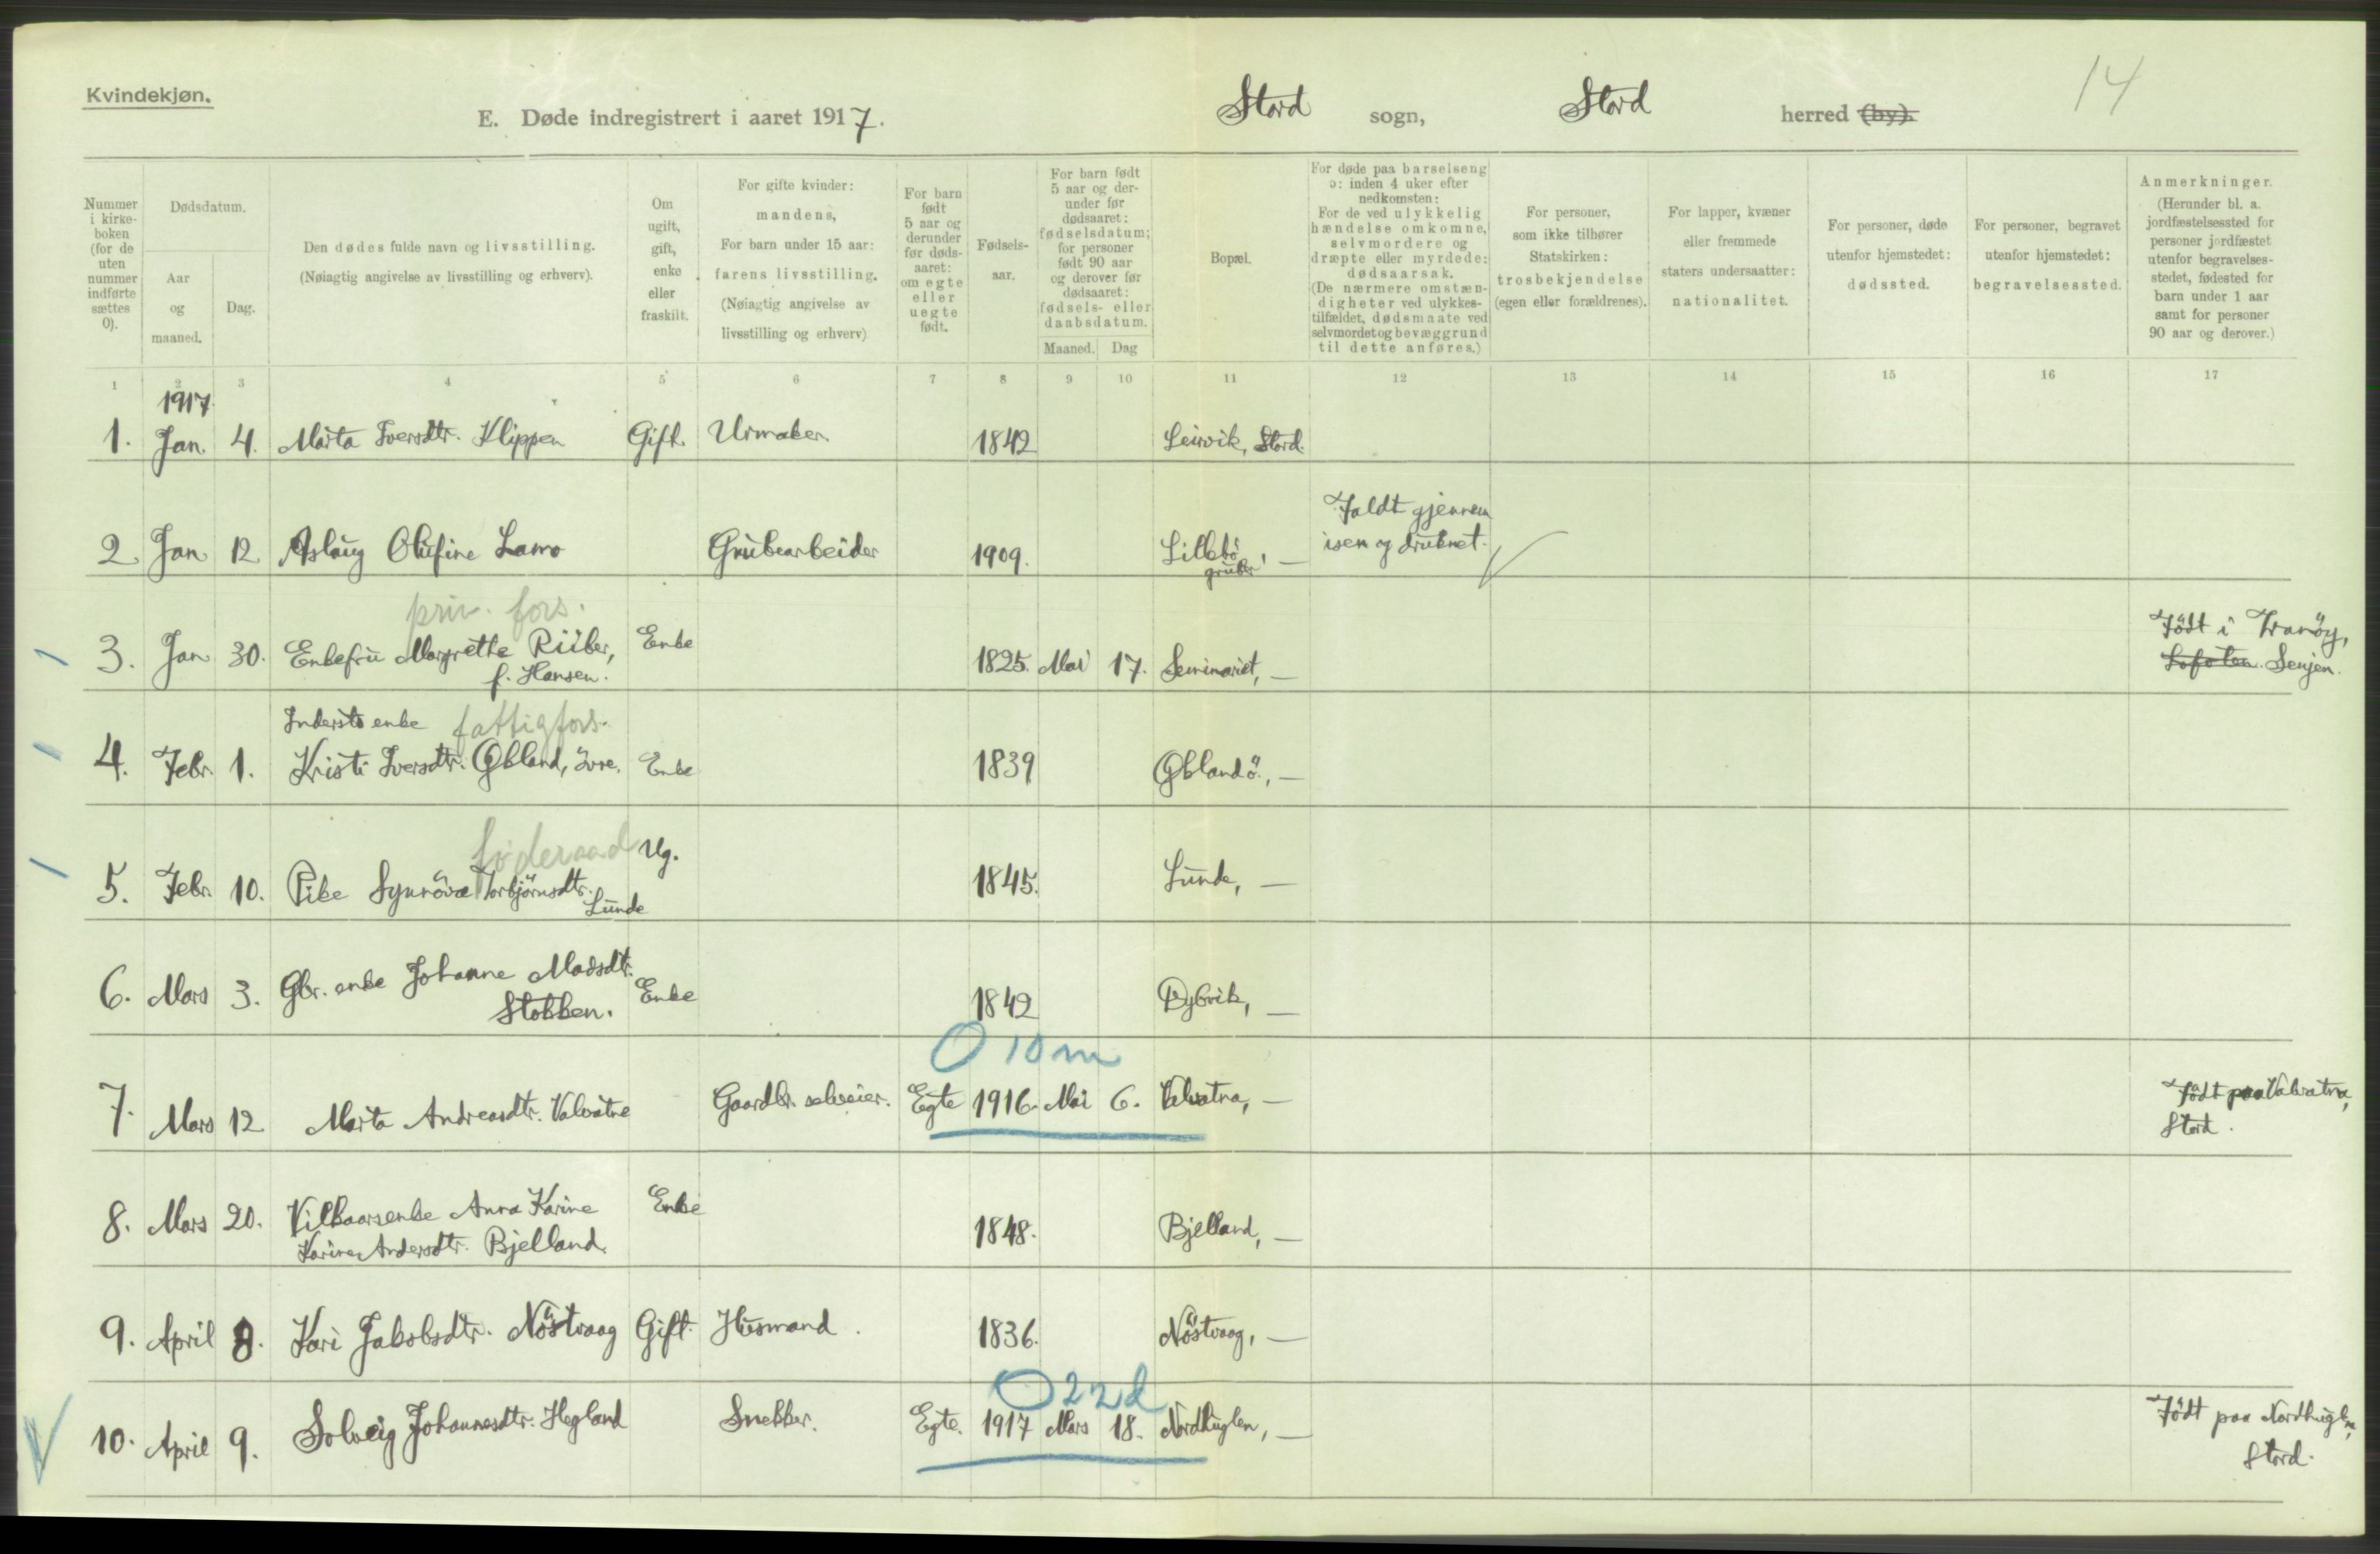 Kvindekjøn.
14
E. Døde indregistrert i aaret 1917. Stord sogn, Stord herred (by).
Nummer i kirke-boken (for de uten nummer indførte sættes 0).
Dødsdatum.
Aar og maaned.
Dag.
Den dødes fulde navn og livsstilling.
(Nøiagtig angivelse av livsstilling og erhverv).
Om ugift, gift, enke eller fraskilt.
For gifte kvinder: mandens,
For barn under 15 aar: farens livsstilling.
(Nøiagtig angivelse av livsstilling og erhverv)
For barn født 5 aar og derunder før døds-aaret: om egte eller uegte født.
Fødsels-aar.
For barn født 5 aar og der-under før dødsaaret: fødselsdatum; for personer født 90 aar og derover før dødsaaret: fødsels- eller daabsdatum.
Maaned. Dag
Bopæl.
For døde paa barselseng ɔ: inden 4 uker efter nedkomsten:
For de ved ulykkelig hændelse omkomne, selvmordere og dræpte eller myrdede: dødsaarsak.
(De nærmere omstæn-digheter ved ulykkes-tilfældet, dødsmaate ved selvmordet og bevæggrund til dette anføres.)
For personer, som ikke tilhører Statskirken: trosbekjendelse (egen eller forældrenes).
For lapper, kvæner eller fremmede staters undersaatter: nationalitet.
For personer, døde utenfor hjemstedet: dødssted.
For personer, begravet utenfor hjemstedet: begravelsessted.
Anmerkninger.
(Herunder bl. a. jordfæstelsessted for personer jordfæstet utenfor begravelses-stedet, fødested for barn under 1 aar samt for personer 90 aar og derover.)
1 2 3 4 5 6 7 8 9 10 11 12 13 14 15 16 17
1917
1. Jan. 4. Marta Iversdtr. Klippen Gift. Urmaker 1842 Leirvik, Stord.
Faldt gjennem
2. Jan 12 Aslaug Olufine Lamo Grubearbeider 1909. Lillebö gruber, — isen og druknet.
priv. fors.
3. Jan 30. Enkefru Margrethe Riiber, Enke 1825. Mai 17. Seminariet, — Födt i Tranöy,
f. Hansen. Lofoten. Senjen.
Inderste enke fattigfors.
4. Febr. 1. Kristi Iversdtr. Økland, övre. Enke 1839 Øklandö., —
föderaad
5. Febr. 10. Pike Synnöva Torbjörnsdtr. Ug. 1845. Lunde, —
Lunde
6. Mars 3. Gbr. enke Johanne Madsdtr. Enke 1842 Dybvik, —
Stokken.
O 10 m
7. Mars 12 Marta Andreasdtr. Valvatne Gaardbr. selveier. Egte 1916. Mai 6. Valvatna, — Födt paa Valvatna,
Stord.
8. Mars 20. Vilkaarsenke Anna Karine Enke 1848. Bjelland, —
Karine Andersdtr. Bjelland.
9. April 8. Kari Jakobsdtr. Nöstvaag Gift. Husmand. 1836. Nöstvaag, —
O 22 d
10. April 9. Solveig Johannesdtr. Hegland Snekker. Egte. 1917 Mars 18. Nordhuglen, — Födt paa Nordhuglen,
Stord.